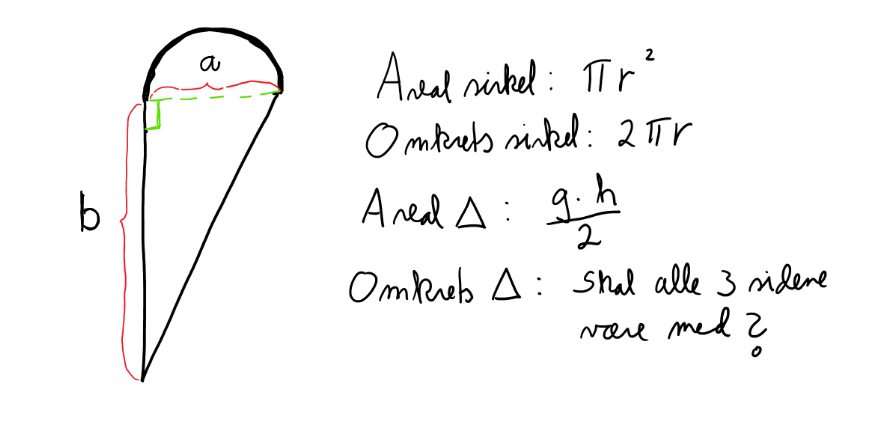 a
b
Areal sirkel: πr²
Omkrets sirkel: 2πr
Areal Δ: g·h/2
Omkrets Δ: skal alle 3 sidene
være med?